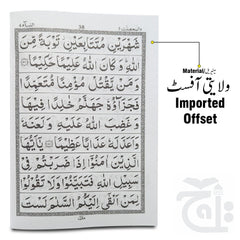 38
شَهْرَيْنِ مُتَتَابِعَيْنِ تَوْبَةً مِّنَ
اللهِ وَكَانَ اللهُ عَلِيْمًا حَكِيْمًا
وَمَنْ يَّقْتُلْ مُؤْمِنًا مُّتَعَمِّدًا
فَجَزَآؤُهٗ جَهَنَّمُ خٰلِدًا فِيْهَا
وَغَضِبَ اللهُ عَلَيْهِ وَلَعَنَهٗ
وَاَعَدَّ لَهٗ عَذَابًا عَظِيْمًا يٰٓاَيُّهَا
الَّذِيْنَ اٰمَنُوْٓا اِذَا ضَرَبْتُمْ فِيْ
سَبِيْلِ اللهِ فَتَبَيَّنُوْا وَلَا تَقُوْلُوْا
لِمَنْ اَلْقٰٓى اِلَيْكُمُ السَّلٰمَ لَسْتَ
Material
ولایتی آفسٹ
Imported
Offset